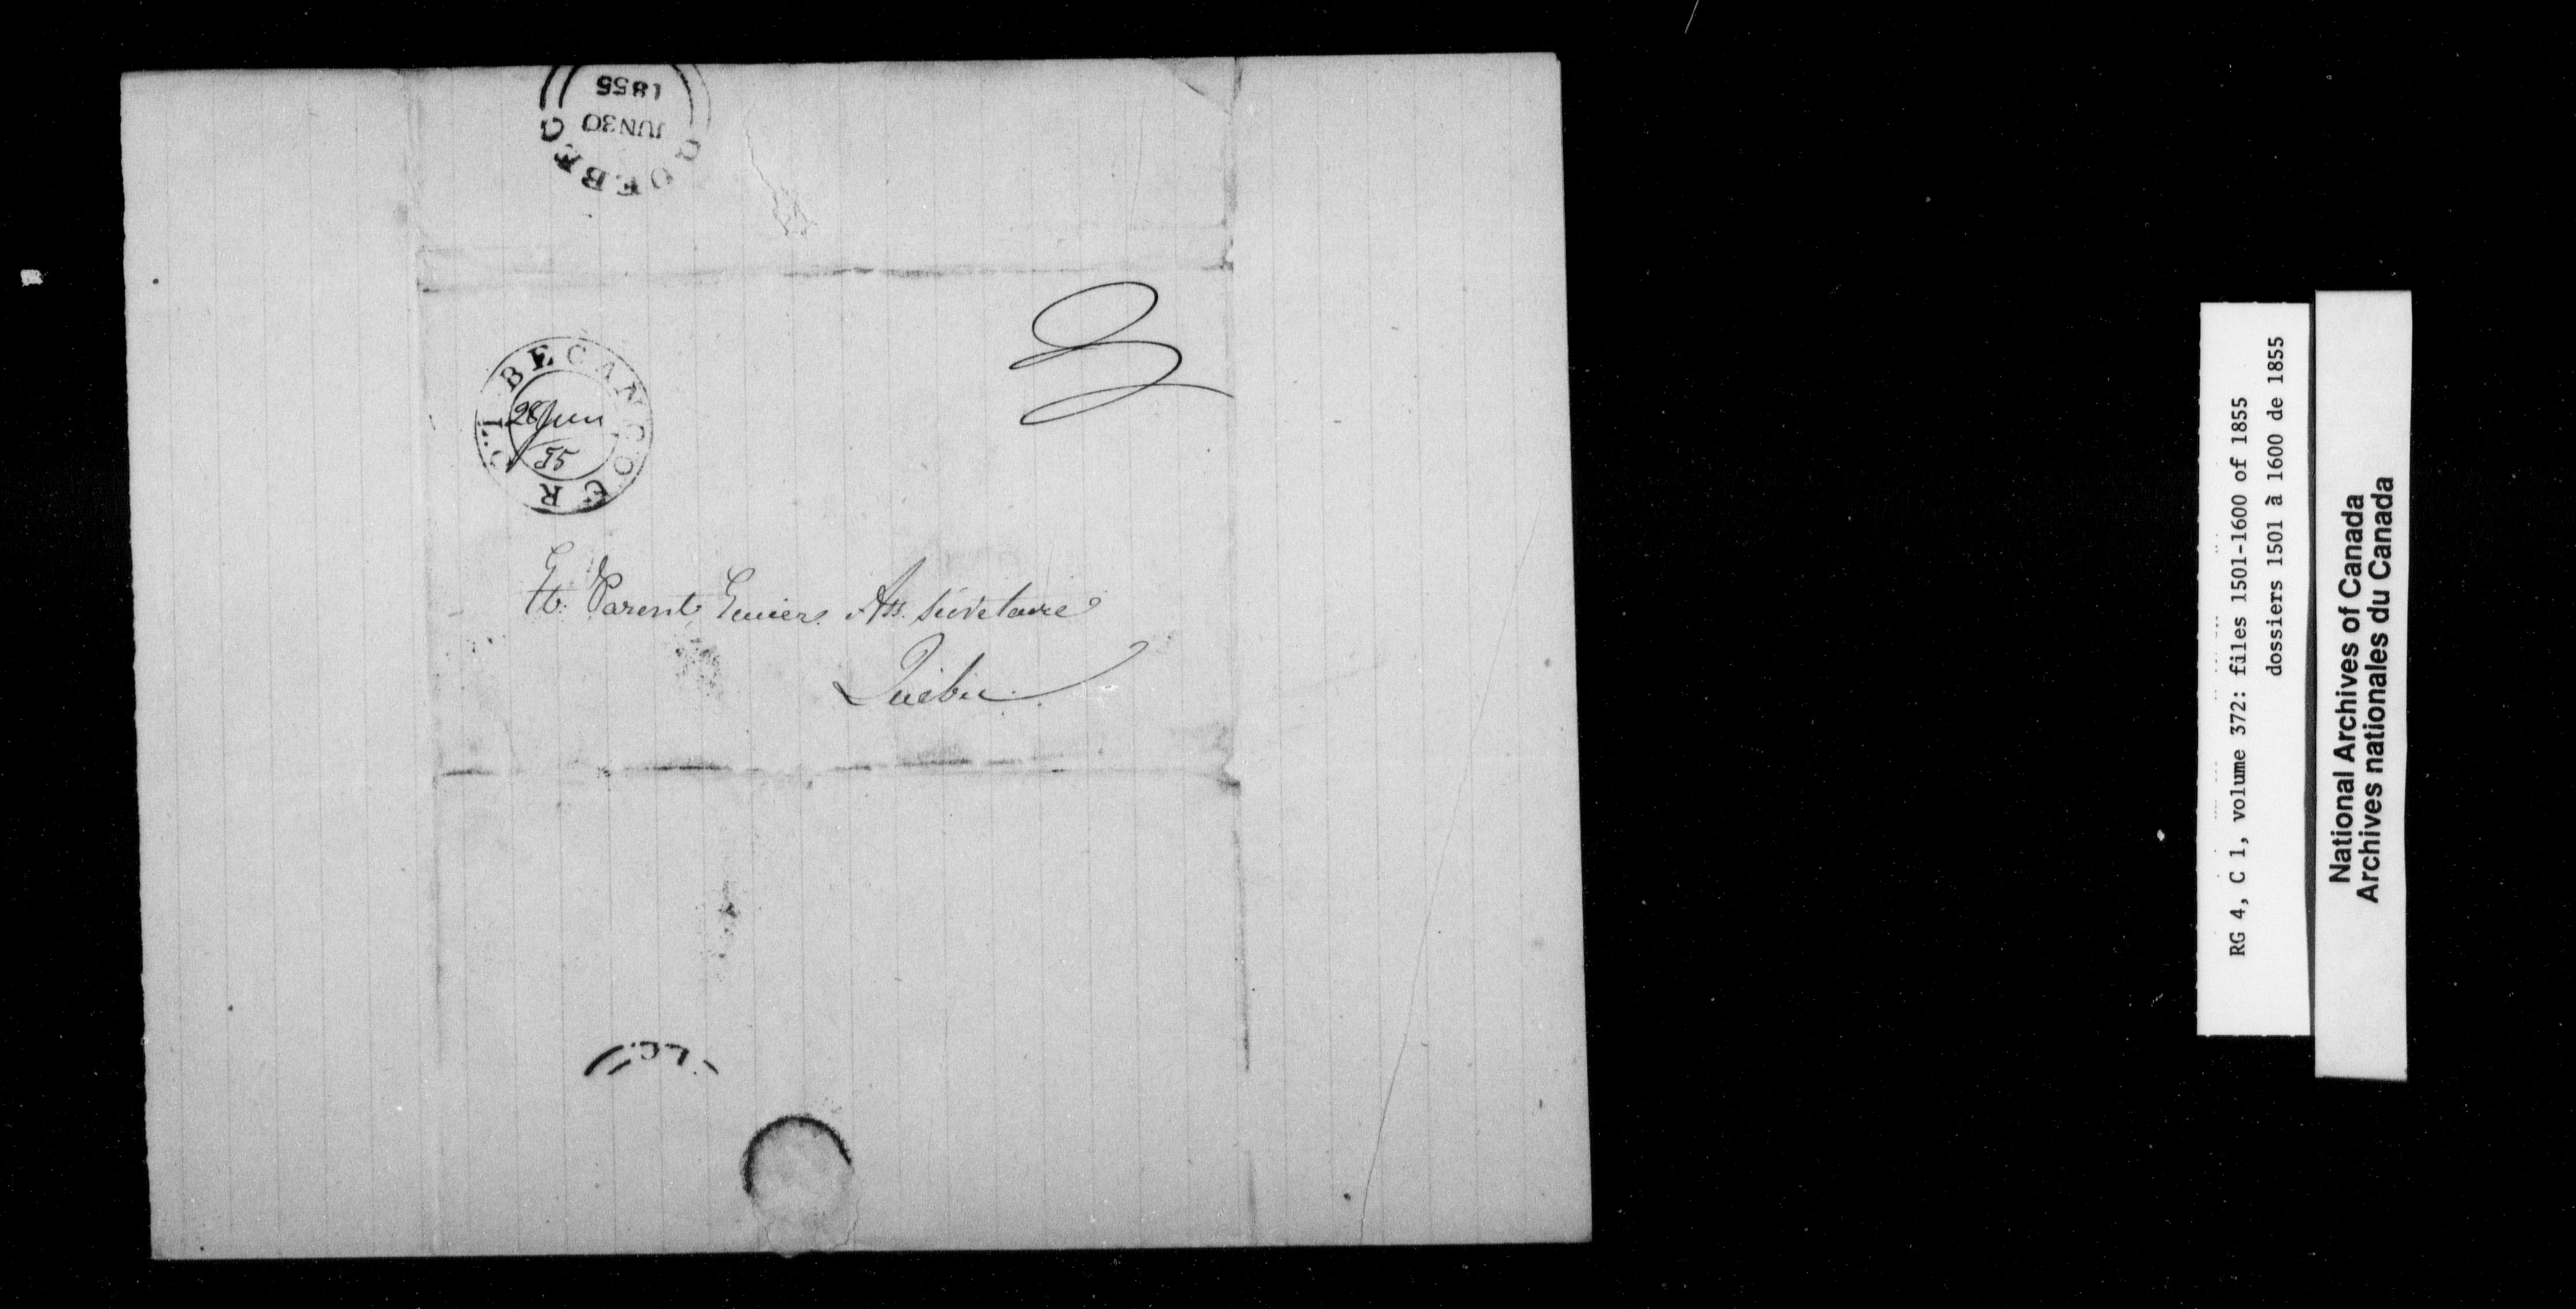 QUEBEC
JUN 30
1855
BECANCOUR
28 Juin
55
Et. Parent Ecuier Ass. Sécretaire
Québec.
L.C.
RG 4, C 1, volume 372: files 1501-1600 of 1855
dossiers 1501 à 1600 de 1855
National Archives of Canada
Archives nationales du Canada